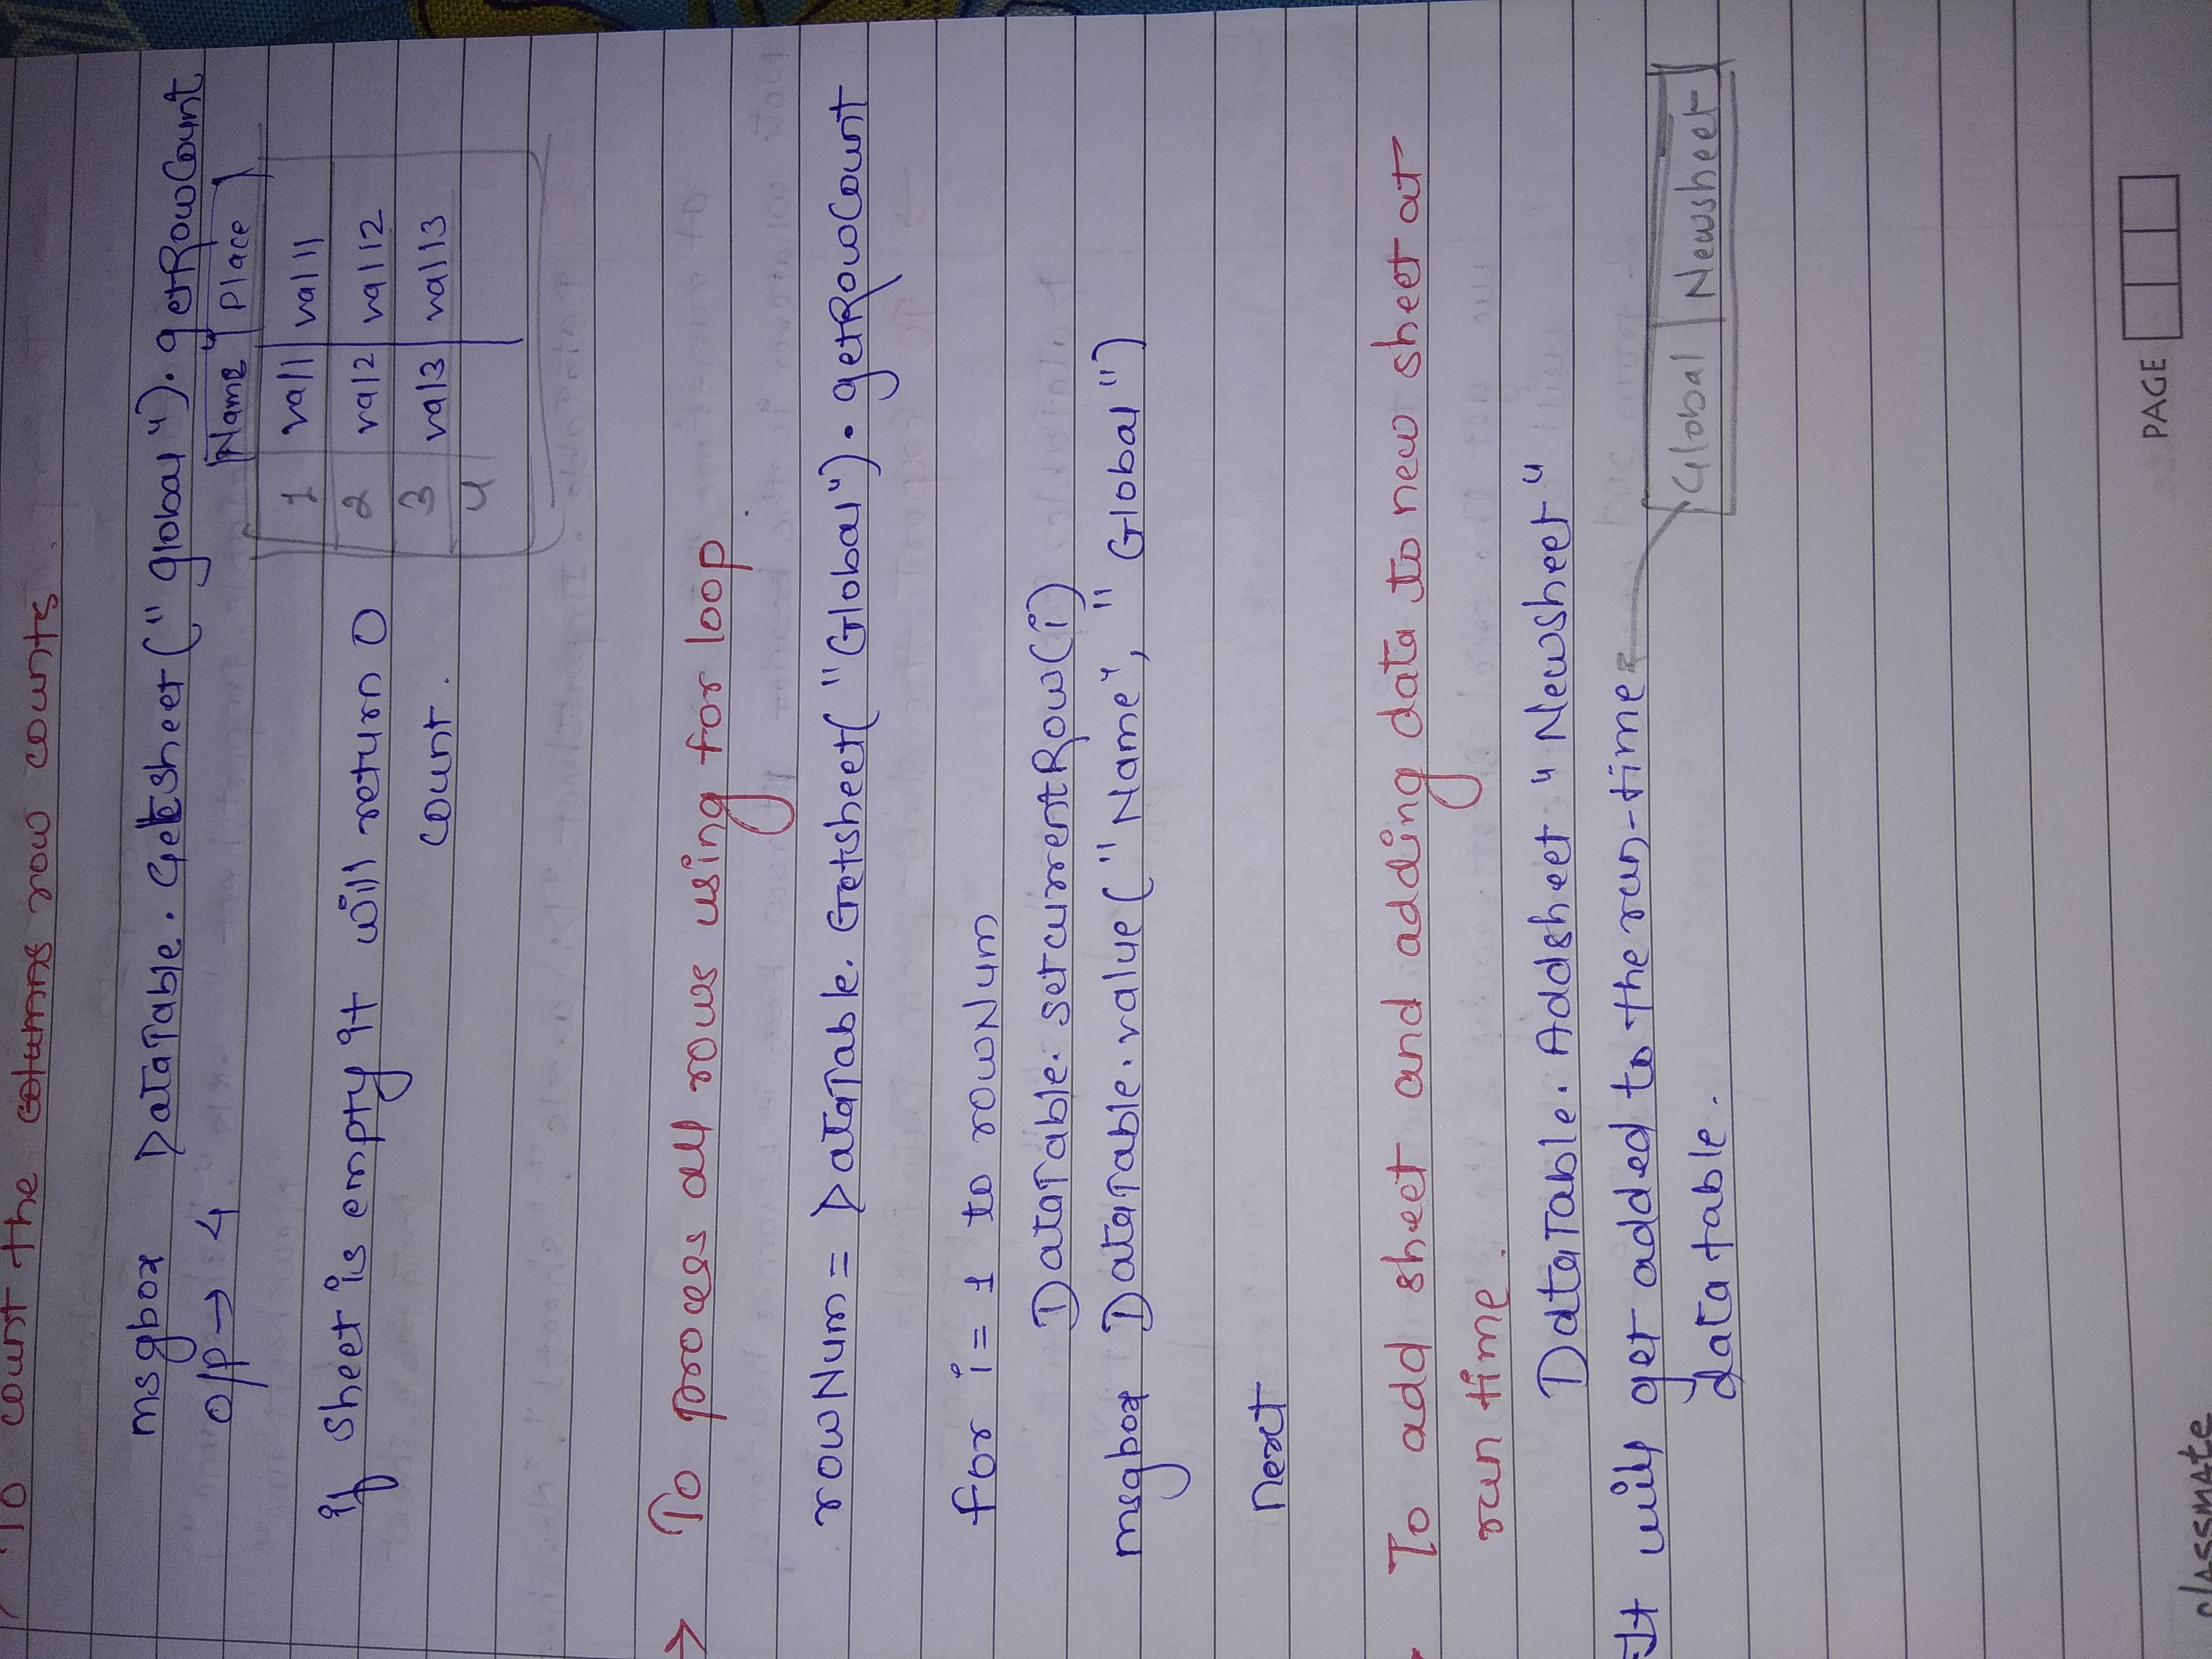 To count the columns row counts.
msgbox DataTable.GetSheet("global").getRowCount
o/p → 4
Name | Place
1 val1 val11
2 val2 val12
3 val3 val13
4
if sheet is empty it will return 0
count.
→ To process all rows using for loop
rowNum = DataTable.GetSheet("Global").getRowCount
for i = 1 to rowNum
DataTable.setcurrentRow(i)
msgbox DataTable.value("Name", "Global")
Next
To add sheet and adding data to new sheet at
run time.
DataTable.Addsheet "Newsheet"
It will get added to the run-time
data table.
Global | Newsheet
PAGE
classmate